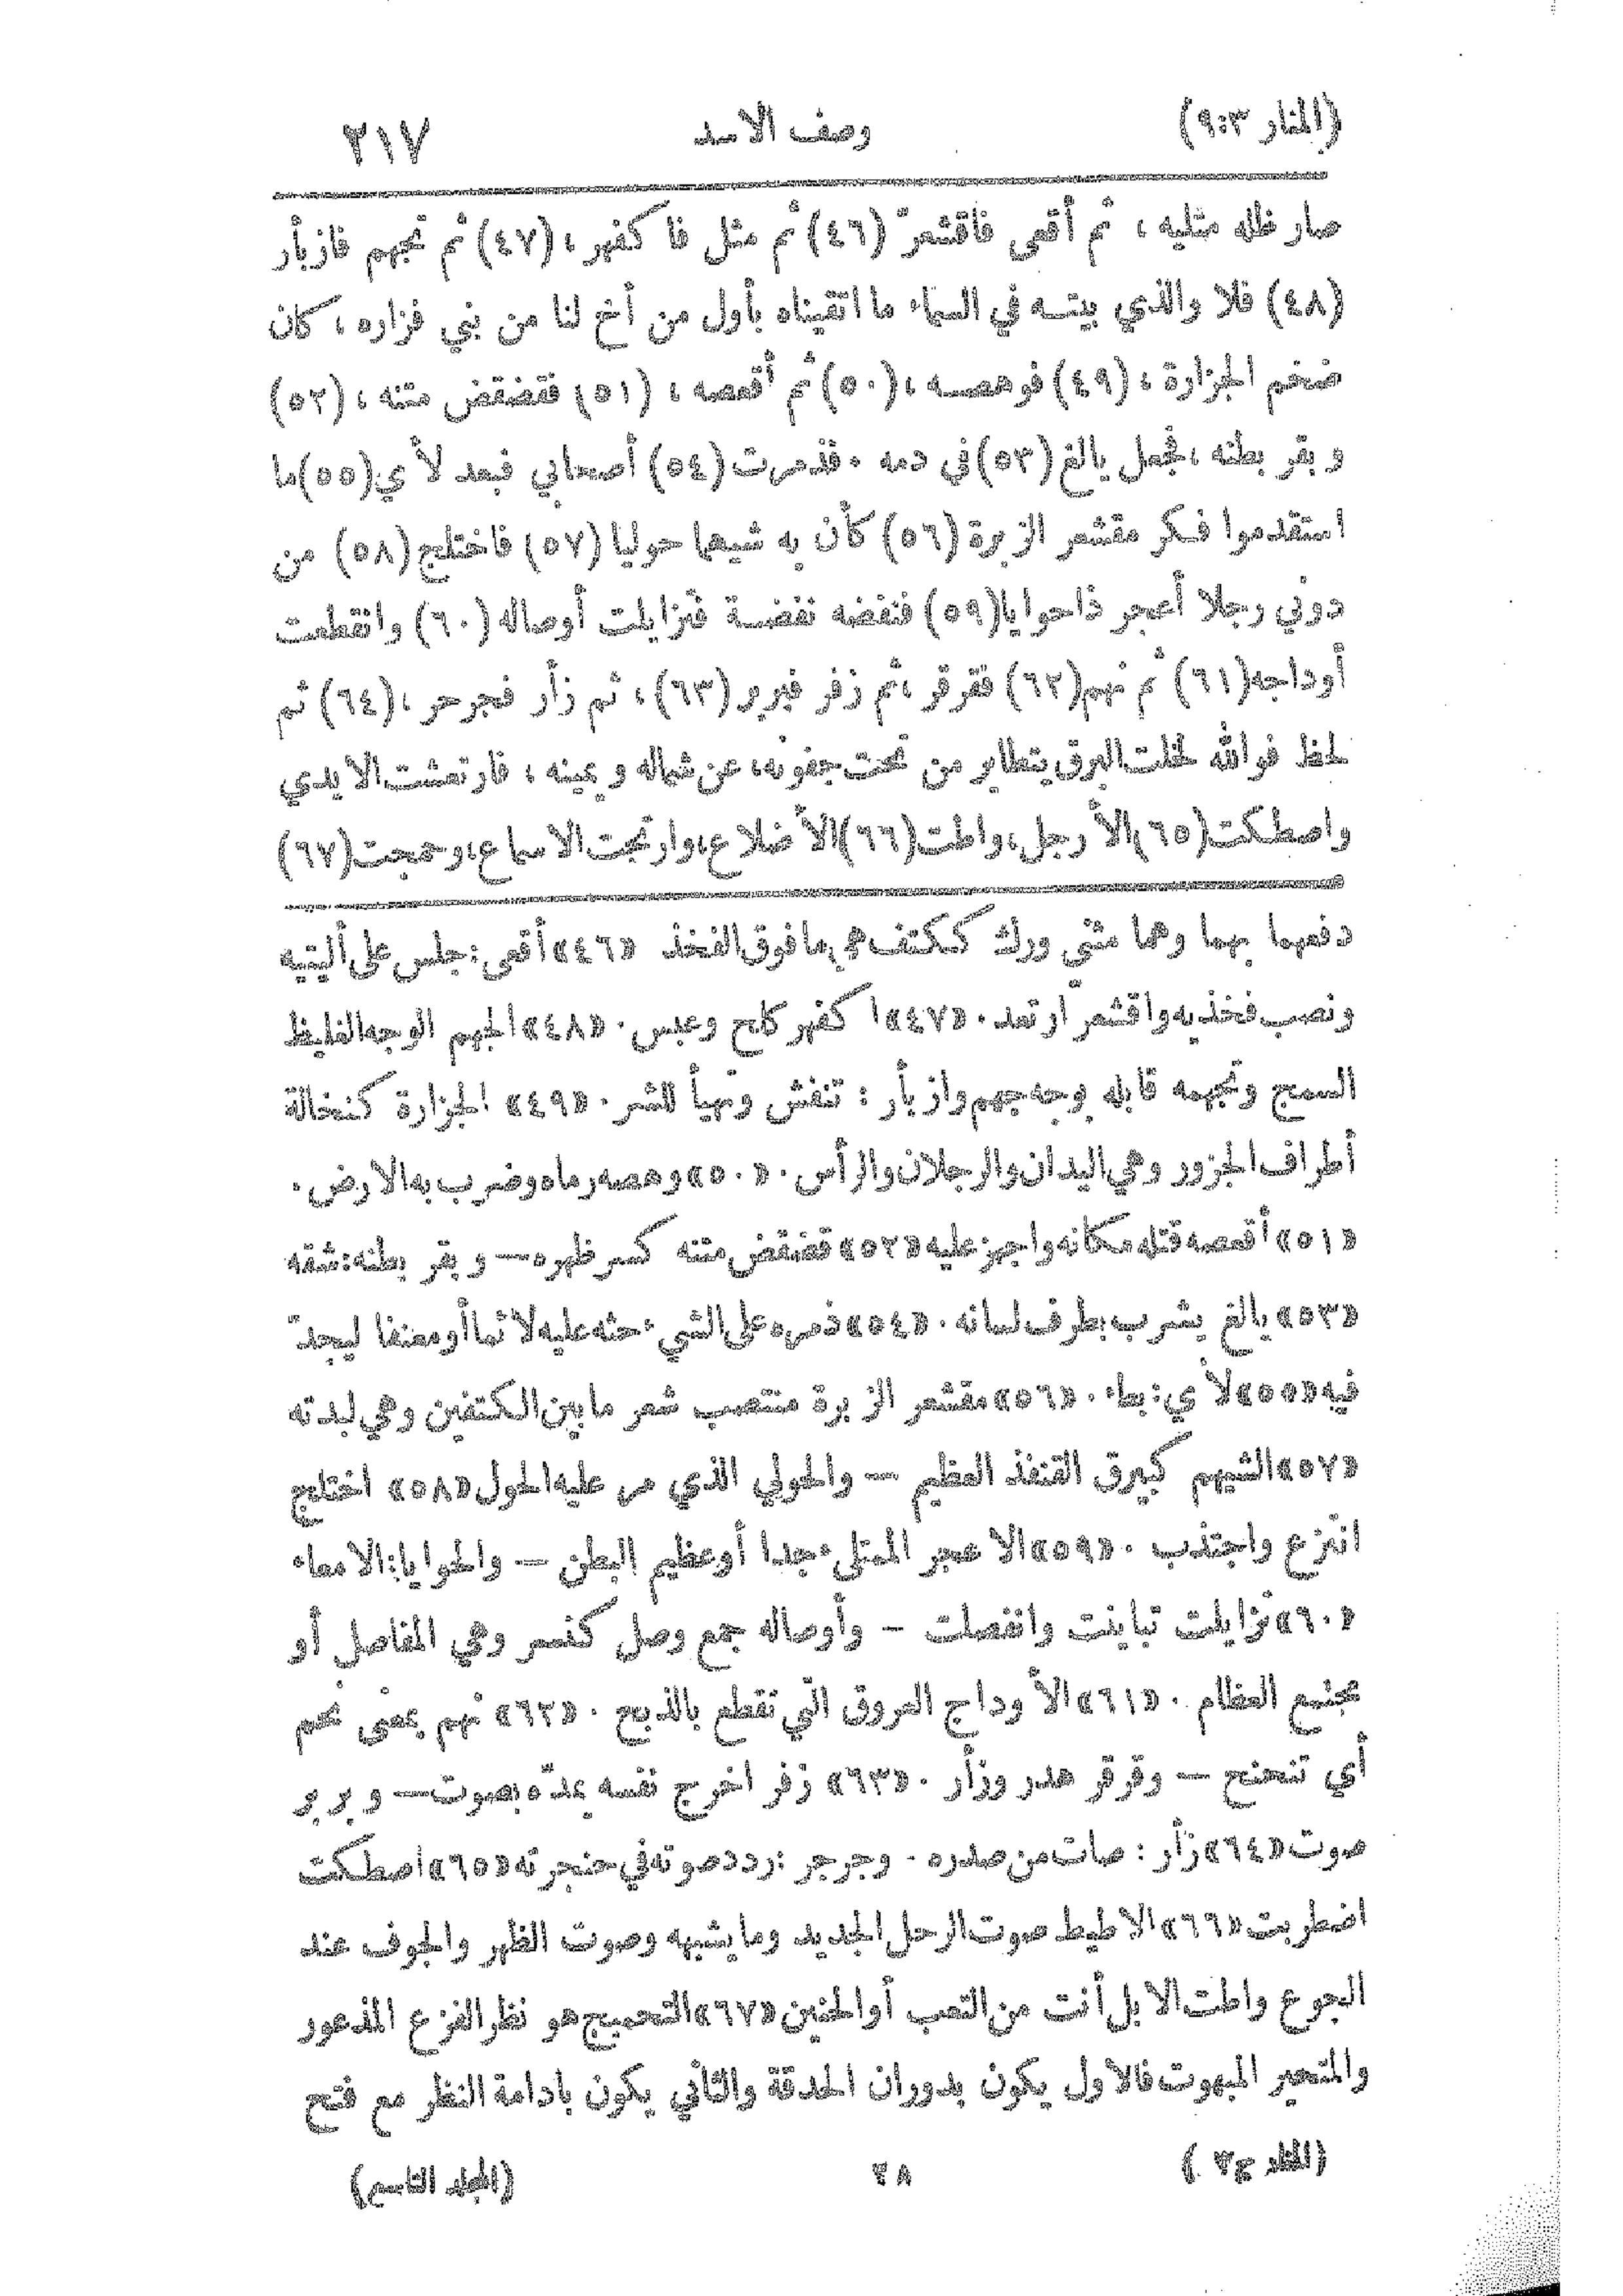 (المنار ٣:٩) وصف الاسد ٢١٧
صار ظله مثليه ، ثم أقعى فاقشعرّ (٤٦) ثم مثل فا كفهر ، (٤٧) ثم تجهم فازبأر
(٤٨) فلا والذي بيته في السماء ما اتقيناه بأول من أخ لنا من بني فزاره ، كان
ضخم الجزارة ، (٤٩) فوهصه ، (٥٠) ثم أقعصه ، (٥١) فقضقض متنه ، (٥٢)
و بقر بطنه ، فجعل يالغ (٥٣) في دمه . فذمرت (٥٤) أصحابي فبعد لأ ي (٥٥) ما
استقدموا فكر مقشعر الزبرة (٥٦) كأن به شيهما حوليا (٥٧) فاختلج (٥٨) من
دوني رجلا أعجر ذا حوايا (٥٩) فنفضه نفضة فتزايلت أوصاله (٦٠) وانقطعت
أوداجه (٦١) ثم نهم (٦٢) فقرقر ، ثم زفر فبربر (٦٣) ، ثم زأر فجرجر ، (٦٤) ثم
لحظ فوالله لخلت البرق يتطاير من تحت جفونه ، عن شماله و يمينه ، فارتعشت الايدي
واصطكت (٦٥) الأرجل ، واطت (٦٦) الأضلاع ، وارتجت الاسماع ، وحمجت (٦٧)
دفعهما بهما وهما مثنى ورك ككتف هي ما فوق الفخذ «٤٦» أقعى : جلس على أليتيه
ونصب فخذيه واقشعرّ ارتعد . «٤٧» ا كفهر كلح وعبس . «٤٨» الجهم الوجه الغليظ
السمج وتجهمه قابله بوجه جهم وازبأر : تنفش وتهيأ للشر . «٤٩» الجزارة كنخالة
أطراف الجزور وهي اليدان والرجلان والرأس . «٥٠» وهصه رماه وضرب به الارض .
«٥١» أقعصه قتله مكانه واجهز عليه «٥٢» قضقض متنه كسر ظهره — و بقر بطنه : شقه
«٥٣» يالغ يشرب بطرف لسانه . «٥٤» ذمره على الشيء حثه عليه لائما أو معنفا ليجدّ
فيه «٥٥» لأ ي : بطء . «٥٦» مقشعر الزبرة منتصب شعر ما بين الكتفين وهي لبدته
«٥٧» الشيهم كبيرق القنفذ العظيم — والحولي الذي مر عليه الحول «٥٨» اختلج
انتزع واجتذب . «٥٩» الاعجر الممتلىء جدا أو عظيم البطن — والحوايا : الامعاء
«٦٠» تزايلت تباينت وانفصلت – وأوصاله جمع وصل كنسر وهي المفاصل أو
مجتمع العظام . «٦١» الأوداج العروق التي تقطع بالذبح . «٦٢» نهم بمعنى نحم
أي تنحنح — وقرقر هدر وزأر . «٦٣» زفر اخرج نفسه بمدّه بصوت — و بربر
صوت «٦٤» زأر : صات من صدره . وجرجر : ردد صوته في حنجرته «٦٥» اصطكت
اضطربت «٦٦» الاطيط صوت الرحل الجديد وما يشبهه وصوت الظهر والجوف عند
الجوع واطت الابل أنت من التعب أو الحنين «٦٧» التحميج هو نظر الفزع المذعور
والمتحير المبهوت فالاول يكون بدوران الحدقة والثاني يكون بادامة النظر مع فتح
(المنار ج٣) ٢٨ (المجلد التاسع)